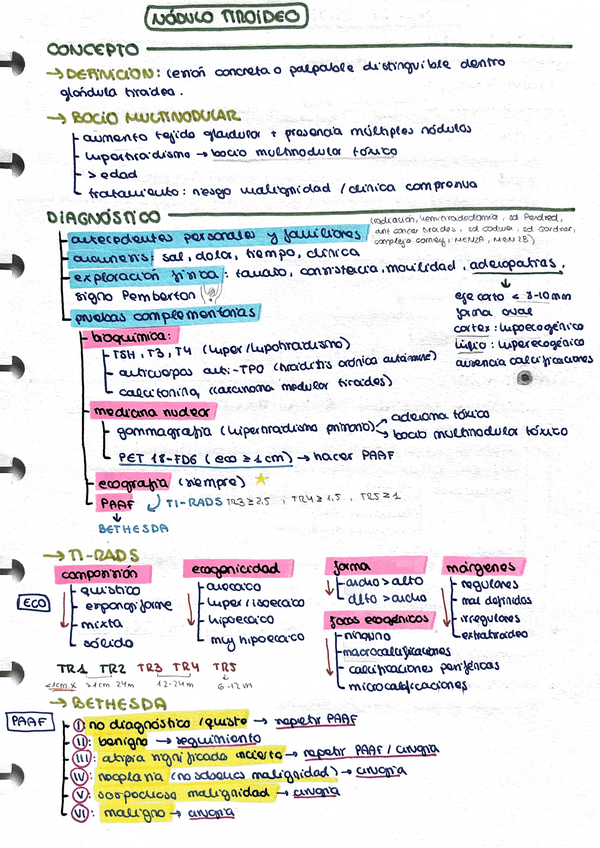 NÓDULO TIROIDEO
CONCEPTO
→ DEFINICIÓN: lesión concreta o palpable distinguible dentro
glándula tiroidea.
→ BOCIO MULTINODULAR
aumento tejido glandular + presencia múltiples nódulos
hipertiroidismo → bocio multinodular tóxico
> edad
tratamiento: riesgo malignidad / clínica compresiva
DIAGNÓSTICO
(radiación, hemitiroidectomía, sd Pendred,
antecedentes personales y familiares
ant cancer tiroides, sd cowden, sd Gardner,
complejo carney, MEN2A, MEN2B)
anamnesis: sal, dolor, tiempo, clínica
exploración física: tamaño, consistencia, movilidad, adenopatías,
signo Pemberton
eje corto < 8-10 mm
forma oval
cortex: hipoecogénico
hilio: hiperecogénico
ausencia calcificaciones
pruebas complementarias
bioquímica:
TSH, T3, T4 (hiper/hipotiroidismo)
anticuerpos anti-TPO (tiroiditis crónica autoinmune)
calcitonina (carcinoma medular tiroides)
medicina nuclear
gammagrafía (hipertiroidismo primario)
adenoma tóxico
bocio multinodular tóxico
PET 18-FDG (eco ≥ 1 cm) → hacer PAAF
ecografía (siempre)
PAAF TI-RADS TR3 ≥ 2.5 , TR4 ≥ 1.5 , TR5 ≥ 1
BETHESDA
→ TI-RADS
composición ecogenicidad forma márgenes
ECO
quístico
espongiforme
mixta
sólido
anecoico
hiper/isoecoico
hipoecoico
muy hipoecoico
ancho > alto
alto > ancho
focos ecogénicos
ninguno
macrocalcificaciones
calcificaciones periféricas
microcalcificaciones
regulares
mal definidos
irregulares
extratiroideo
TR1 TR2 TR3 TR4 TR5
<1cm X >1cm 24m 12-24m 6-12m
→ BETHESDA
PAAF
I: no diagnóstico / quiste → repetir PAAF
II: benigno → seguimiento
III: atipia significado incierto → repetir PAAF / cirugía
IV: neoplasia (no sabemos malignidad) → cirugía
V: sospechoso malignidad → cirugía
VI: maligno → cirugía